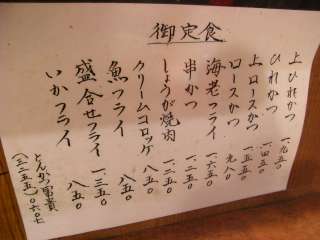 御定食
上ひれかつ 一、九五〇
ひれかつ 一、四五〇
上ロースかつ 一、五五〇
ロースかつ 九八〇
海老フライ 一、六五〇
串かつ 一、二五〇
しょうが焼肉 一、二五〇
クリームコロッケ 八五〇
魚フライ 八五〇
盛合せフライ 一、三五〇
いかフライ 八五〇
とんかつ富貴
(三二五五)〇六〇七